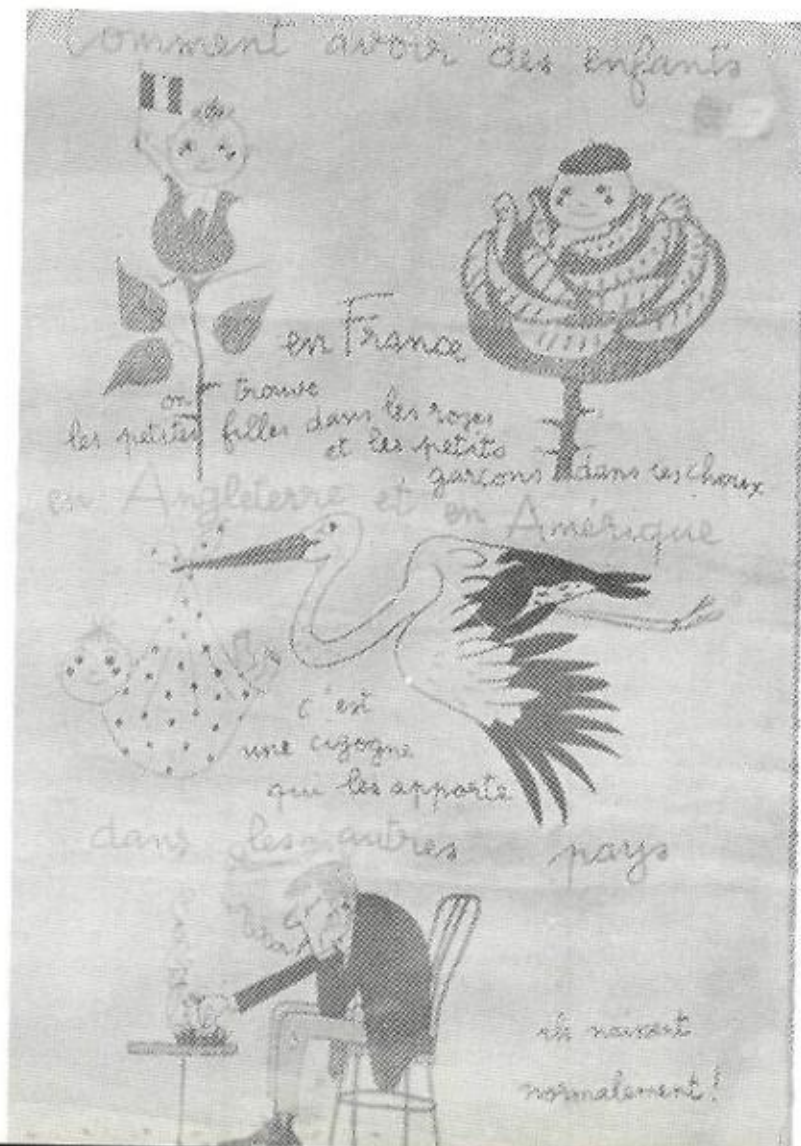 comment avoir des enfants
en France
on trouve
les petites filles dans les roses
et les petits
garçons dans les choux
en Angleterre et en Amérique
c'est
une cigogne
qui les apporte
dans les autres pays
ils naissent
normalement!